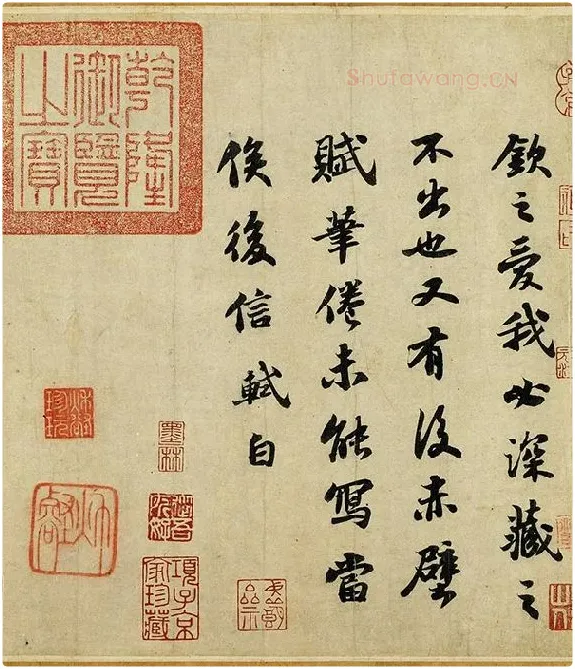 Shufawang.CN
欽之愛我必深藏之
不出也又有後赤壁
賦筆倦未能寫當
俟後信軾白
乾隆
御覽
之寶
墨林
項子京
家珍藏